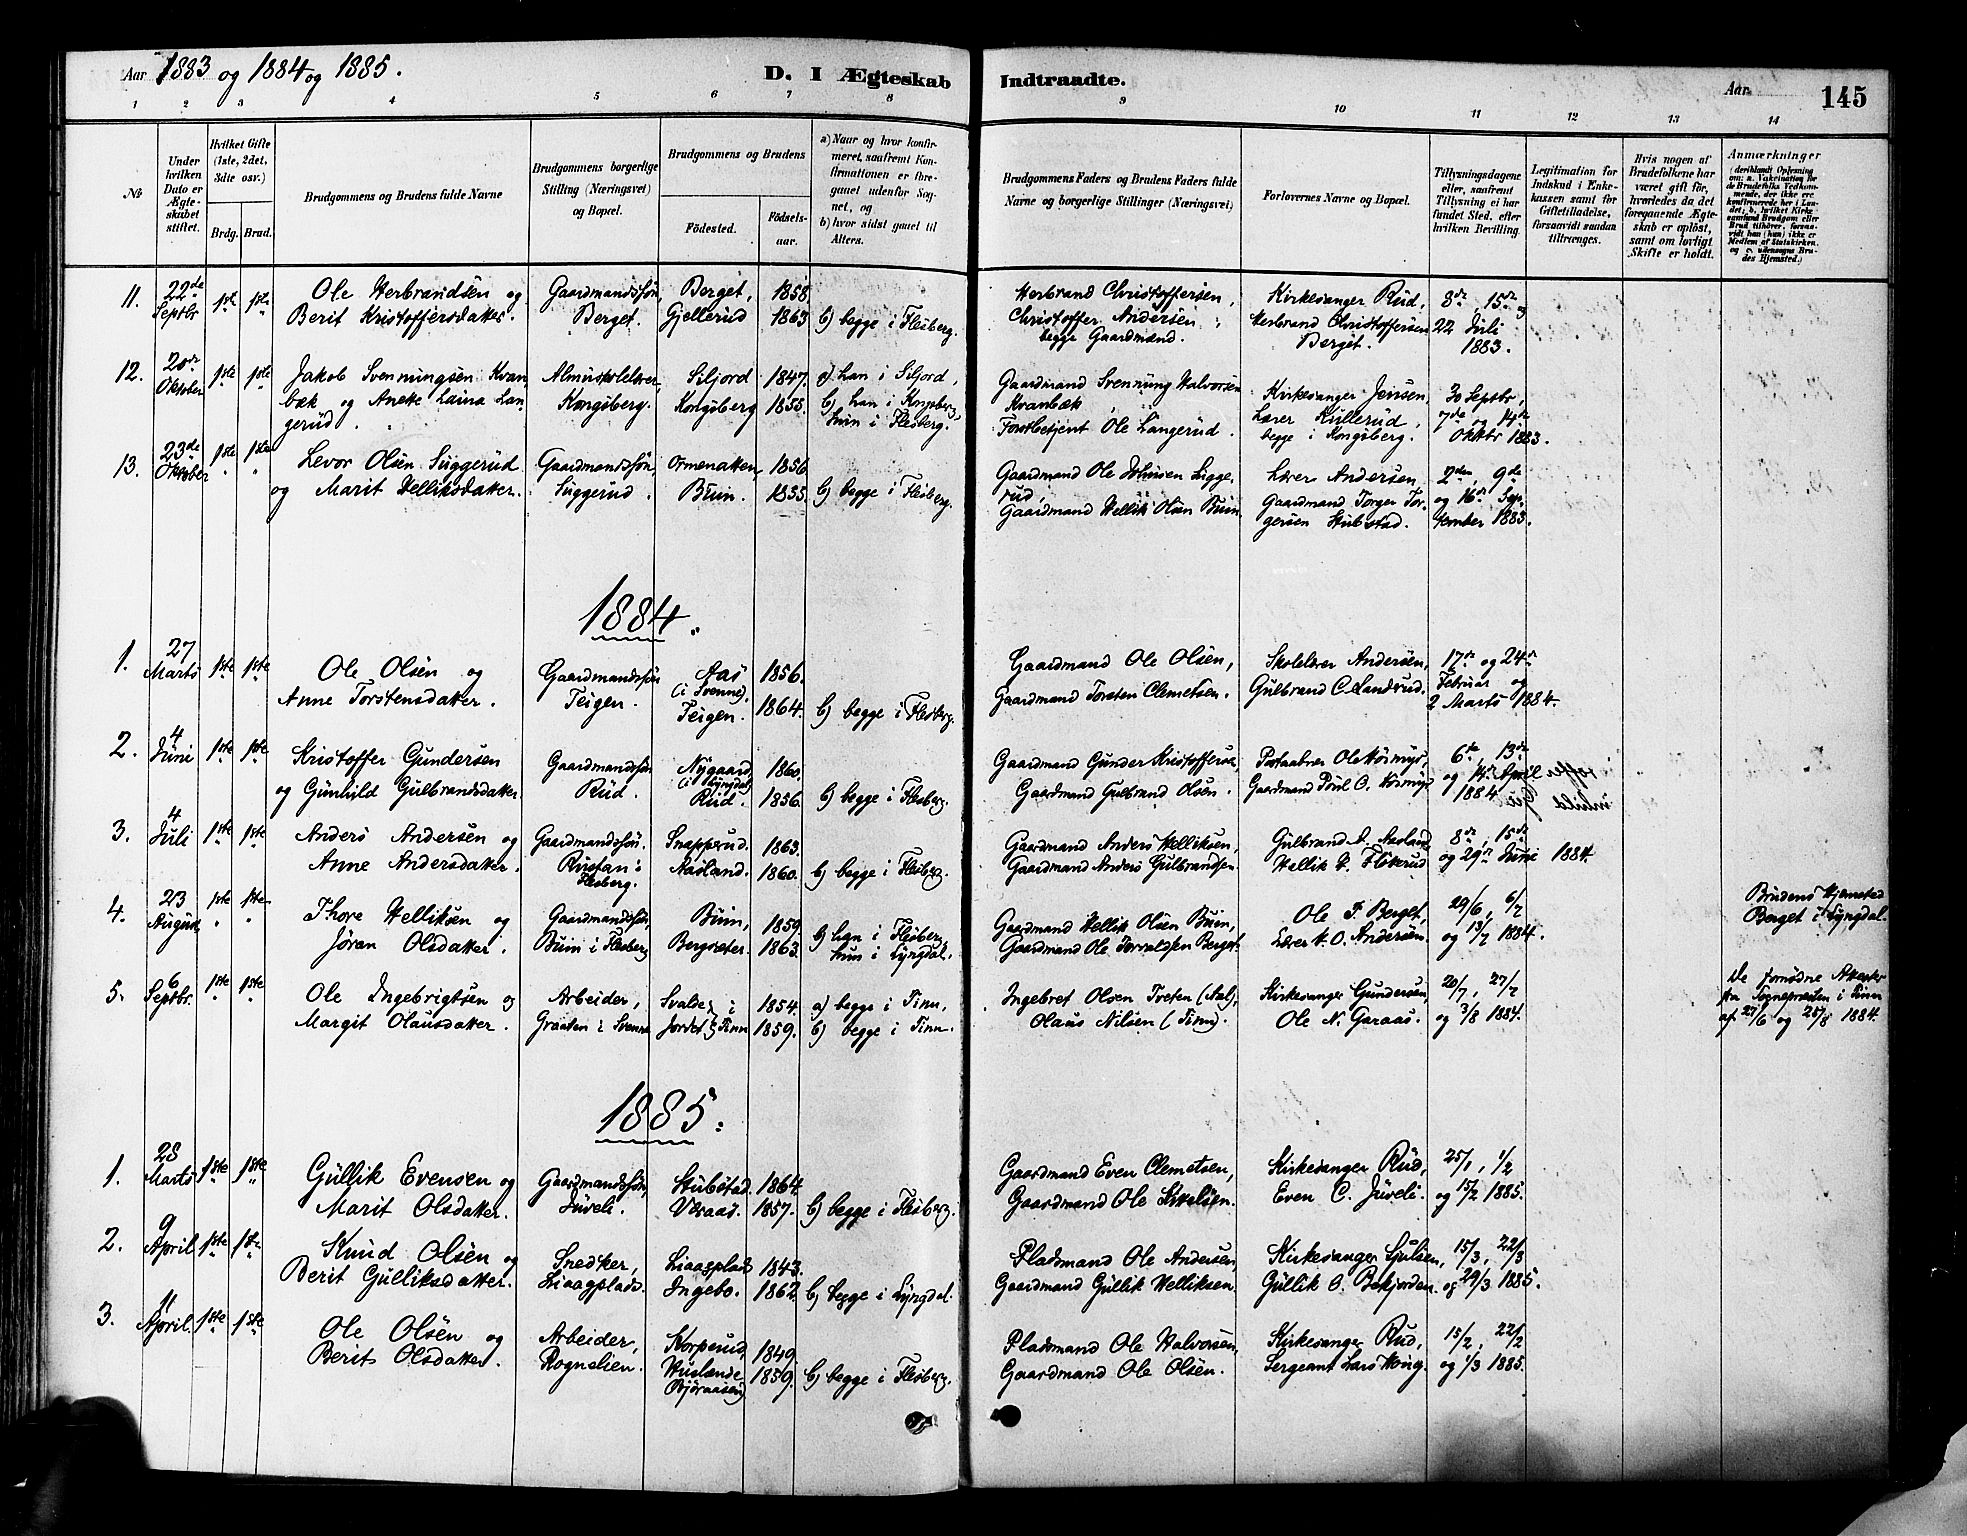 Aar 1883 og 1884 og 1885.
D. I Ægteskab Indtraadte.
Aar 145
1 2 3 4 5 6 7 8 9 10 11 12 13 14
№
Under hvilken Dato er Ægteskabet stiftet.
Hvilket Gifte (1ste, 2det, 3die osv.)
Brdg. Brud.
Brudgommens og Brudens fulde Navne
Brudgommens borgerlige Stilling (Næringsvei) og Bopæl.
Brudgommens og Brudens
Födested.
Födselsaar.
a) Naar og hvor konfirmeret, saafremt Konfirmationen er foregaaet udenfor Sognet, og
b) hvor sidst gaaet til Alters.
Brudgommens Faders og Brudens Faders fulde Navne og borgerlige Stillinger (Næringsvei)
Forlovernes Navne og Bopæl.
Tillysningsdagene eller, saafremt Tillysning ei har fundet Sted, efter hvilken Bevilling.
Legitimation for Indskud i Enkekassen samt for Giftetilladelse, forsaavidt saadan tiltrænges.
Hvis nogen af Brudefolkene har været gift før, hvorledes da det foregaaende Ægteskab er opløst, samt om lovligt Skifte er holdt.
Anmærkninger
11. 22de Septbr 1ste 1ste Ole Herbrandsen og Gaardmandssøn, Berget, 1858. Herbrand Christoffersen, Kirkesanger Rud, 8de 15de og
Berit Kristoffersdatter. Berget. Gjellerud 1863 b) begge i Flesberg. Christoffer Andersen, Herbrand Christoffersen 22 Juli
begge Gaardmænd. Berget. 1883.
12. 20de Oktober 1ste 1ste Jakob Svenningsen Kvan Almueskolelærer, Siljord 1847. a) han i Siljord, Gaardmand Svennung Halvorsen Kirkesanger Jensen, 30 Septbr,
bæk og Anette Laina Lan Kongsberg. Kongsberg 1855. b) han i Kongsberg, Kvanbæk, Lærer Kullerud, 7de og 14de
gerud. hun i Flesberg. Forstbetjent Ole Langerud. begge i Kongsberg. Oktbr 1883.
13. 23de Oktober 1ste 1ste Levor Olsen Suggerud Gaardmandssøn, Ormenatten, 1856. Gaardmand Ole Sugge Lærer Andersen 2den, 9de
og Marit Helliksdatter. Suggerud. Buin. 1855. b) begge i Flesberg. rud, Gaardmand Torger Tor og 16de Sep
Gaardmand Hellik Olsen Buin. gersen Stubstad. tember 1883.
1884.
1. 27 Marts 1ste 1ste Ole Olsen og Gaardmandssøn Aas 1856. Gaardmand Ole Olsen, Skolelærer Andersen, 17de og 24de
Anne Torstensdatter. Teigen. (i Svenne), Teigen. 1864. b) begge i Flesberg. Gaardmand Torsten Clemetsen. Gulbrand C. Landrud. Februar og
2 Marts 1884.
2. 4 Juni 1ste 1ste Kristoffer Gundersen Gaardmandssøn Nygaard 1860. Gaardmand Gunder Kristoffersen, Ole 6te, 13de
og Gunhild Gulbrandsdatter Rud. (i Lyngdal) Rud. 1856. b) begge i Flesberg. Gaardmand Gulbrand Olsen. Gaardmand og 14de April
1884
3. 4 Juli 1ste 1ste Anders Andersen og Gaardmandssøn. Snapperud. 1863. Gaardmand Anders Helliksen, Gulbrand A. Aasland 8de, 15de
Anne Andersdatter. Rustan i Flesberg. Aasland. 1860. b) begge i Flesberg. Gaardmand Anders Gulbrandsen. Hellik og 29de Juni 1884.
4. 23 August 1ste 1ste Thore Helliksen og Gaardmandssøn, Buin, 1859. b) han i Flesberg, Gaardmand Hellik Olsen Buin, Ole T. Berget, 29/6, 6/7 Brudens Hjemsted
Jøran Olsdatter. Buin i Flesberg Bergseter. 1863. hun i Lyngdal. Gaardmand Ole Torvaldsen Berget. Lærer H. O. Andersen. og 13/7 1884. Berget i Lyngdal.
5. 6 Septbr. 1ste 1ste Ole Ingebrigtsen og Arbeider, Svalse i 1854. a) begge i Tinn, Ingebret Olsen Tveten (Aal), Kirkesanger Gundersen, 20/7, 27/7 De fornødne Attester
Margit Olausdatter. Graaten i Svenne Jordet Tinn 1859. b) begge i Tinn. Olaus Nilsen (Tinn). Ole N. Garaas. og 3/8 1884. fra Sognepræsten i Tinn
af 27/6 og 25/8 1884.
1885.
1. 28 Marts 1ste 1ste Gullik Evensen og Gaardmandssøn, Stubstad. 1864. Gaardmand Even Clemetsen, Kirkesanger Rud, 25/1, 1/2
Marit Olsdatter. Juveli. Vsraas. 1857. b) begge i Flesberg. Gaardmand Ole Even C. Juveli. og 15/2 1885.
2. 9 April 1ste 1ste Knud Olsen og Snedker, Liaasplads 1843. Pladsmand Ole Andersen, Kirkesanger Sjulsen, 15/3, 22/3
Berit Gulliksdatter. Liaagplads. Ingebo. 1862. b) begge i Lyngdal. Gaardmand Gullik Helliksen. Gullik O. Bekjorden. og 29/3 1885.
3. 11 April. 1ste 1ste Ole Olsen og Arbeider, Korperud, 1849. Pladsmand Ole Halvorsen, Kirkesanger Rud, 15/2, 22/2
Berit Olsdatter. Rognelien. Huslænde Björaasen 1859. b) begge i Flesberg. Gaardmand Ole Olsen. Sergeant Lars Hvnig. og 1/3 1885.